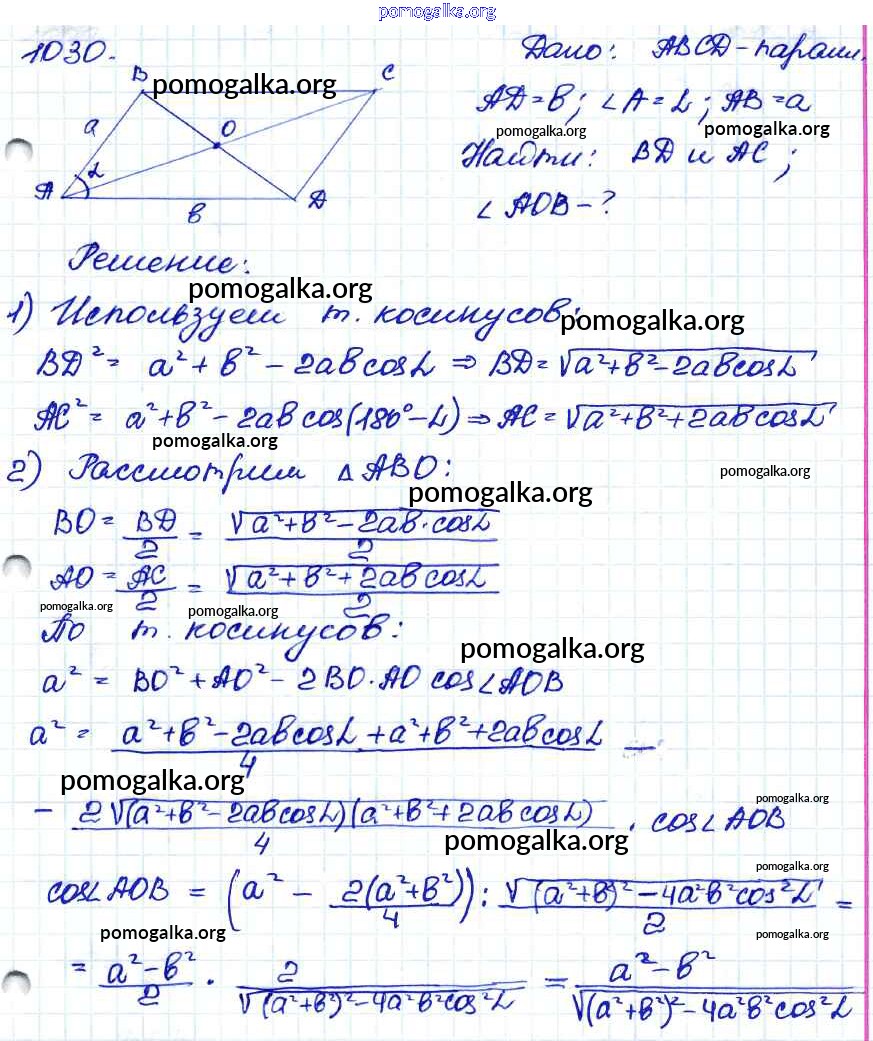 pomogalka.org
1030.
Дано: ABCD - парал.
B pomogalka.org C
AD = в; ∠A = α; AB = a
pomogalka.org pomogalka.org
a O
Найти: BD и AC;
α
A в D
∠AOB - ?
Решение:
pomogalka.org
1) Используем т. косинусов:
pomogalka.org
BD² = a² + в² - 2aв cosα ⇒ BD = √(a² + в² - 2aв cosα)
AC² = a² + в² - 2aв cos(180° - α) ⇒ AC = √(a² + в² + 2aв cosα)
pomogalka.org
2) Рассмотрим ΔABO:
pomogalka.org
pomogalka.org
BO = BD/2 = √(a² + в² - 2aв·cosα)/2
AO = AC/2 = √(a² + в² + 2aв cosα)/2
pomogalka.org pomogalka.org
По т. косинусов:
pomogalka.org
a² = BO² + AO² - 2BO·AO cos∠AOB
a² = (a² + в² - 2aв cosα + a² + в² + 2aв cosα)/4 —
pomogalka.org
- 2√((a² + в² - 2aв cosα)(a² + в² + 2aв cosα))/4 · cos∠AOB
pomogalka.org
pomogalka.org
pomogalka.org
cos∠AOB = (a² - 2(a² + в²)/4) : √((a² + в)² - 4a²в²cos²α)/2 =
pomogalka.org pomogalka.org
= (a² - в²)/2 · 2/√((a² + в²)² - 4a²в²cos²α) = (a² - в²)/√((a² + в²)² - 4a²в²cos²α)